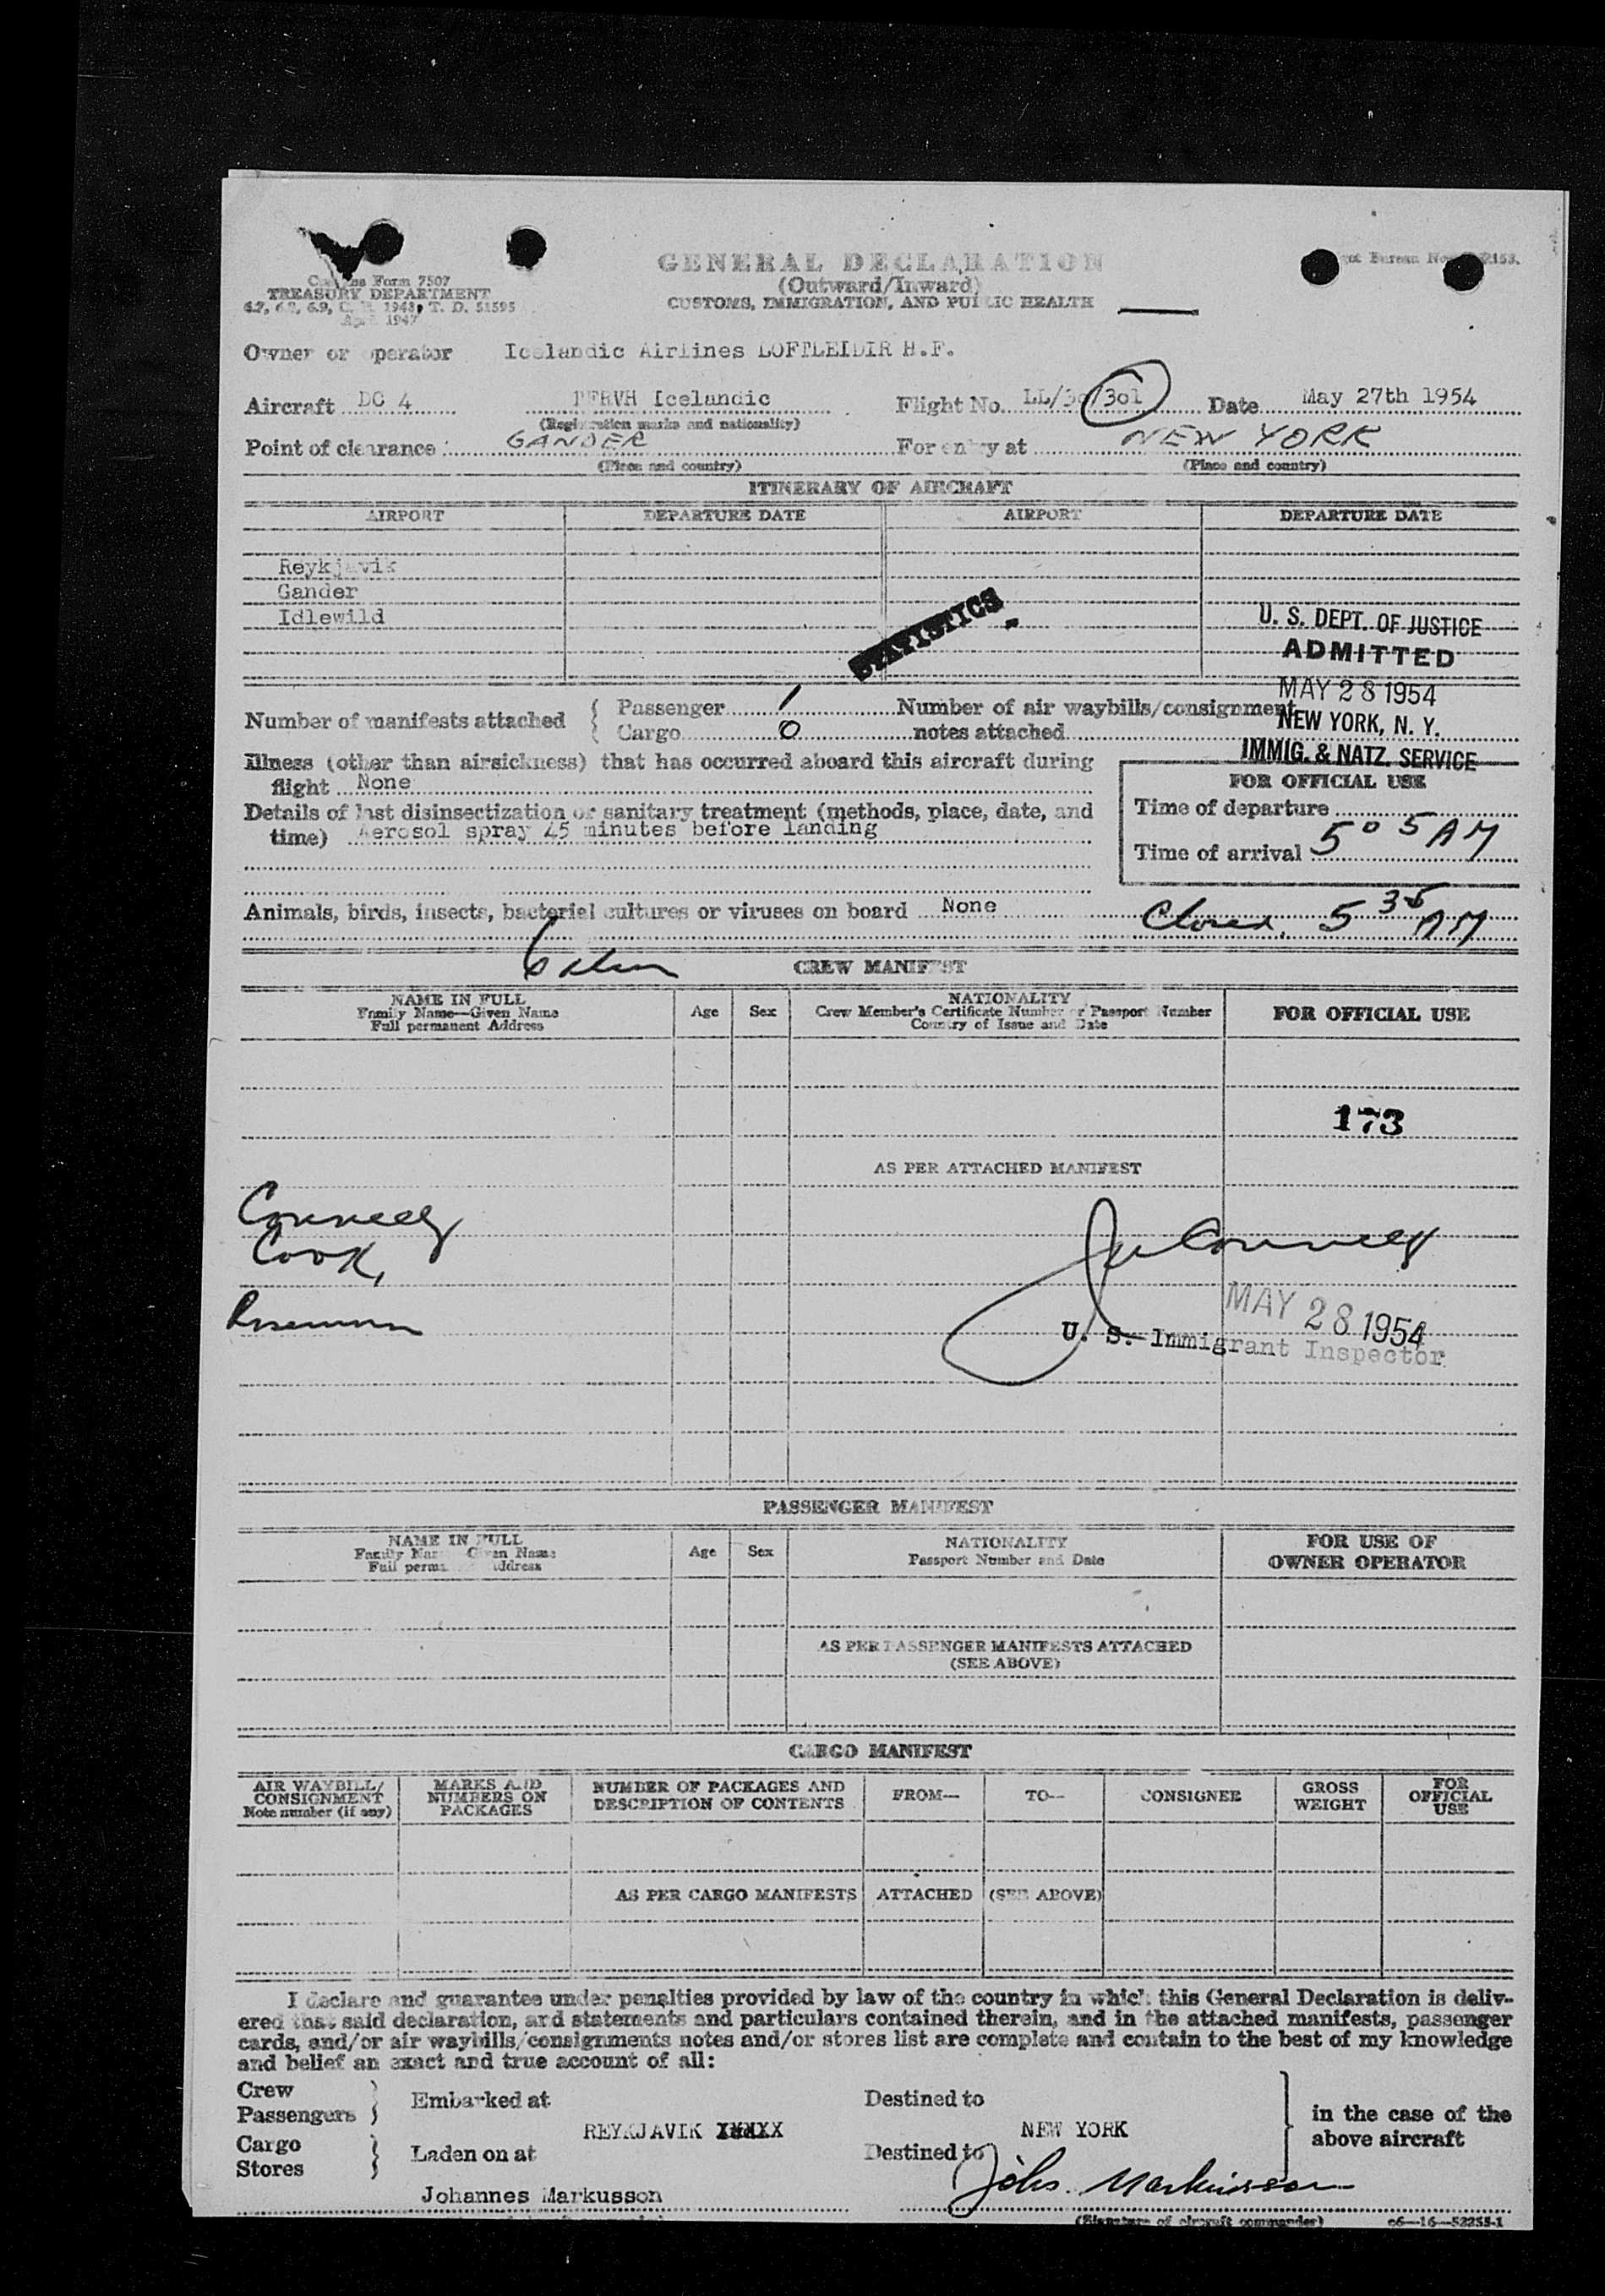 GENERAL DECLARATION
(Outward/Inward)
CUSTOMS, IMMIGRATION, AND PUBLIC HEALTH
Form 7507
TREASURY DEPARTMENT
1948, T. D. 51595
1947
Owner or operator Icelandic Airlines LOFTLEIDIR H.F.
Aircraft DC 4 Icelandic Flight No. 301 Date May 27th 1954
(Registration marks and nationality)
Point of clearance GANDER For entry at NEW YORK
(Place and country) (Place and country)
ITINERARY OF AIRCRAFT
AIRPORT DEPARTURE DATE AIRPORT DEPARTURE DATE
Reykjavik
Gander
Idlewild
STATISTICS
U. S. DEPT. OF JUSTICE
ADMITTED
MAY 28 1954
NEW YORK, N. Y.
IMMIG. & NATZ. SERVICE
Number of manifests attached { Passenger 1 Number of air waybills/consignment
Cargo 0 notes attached
Illness (other than airsickness) that has occurred aboard this aircraft during
flight None
Details of last disinsectization or sanitary treatment (methods, place, date, and
time) Aerosol spray 45 minutes before landing
FOR OFFICIAL USE
Time of departure
Time of arrival 5 05 AM
Animals, birds, insects, bacterial cultures or viruses on board None
Closed 5 35 AM
CREW MANIFEST
NAME IN FULL
Family Name—Given Name
Full permanent Address
Age Sex
NATIONALITY
Crew Member's Certificate Number or Passport Number
Country of Issue and Date
FOR OFFICIAL USE
173
AS PER ATTACHED MANIFEST
Connelly
Cook,
MAY 28 1954
U. S. Immigrant Inspector
PASSENGER MANIFEST
NAME IN FULL
Family Name Given Name
Full permanent Address
Age Sex
NATIONALITY
Passport Number and Date
FOR USE OF
OWNER OPERATOR
AS PER PASSENGER MANIFESTS ATTACHED
(SEE ABOVE)
CARGO MANIFEST
AIR WAYBILL/
CONSIGNMENT
Note number (if any)
MARKS AND
NUMBERS ON
PACKAGES
NUMBER OF PACKAGES AND
DESCRIPTION OF CONTENTS
FROM—
TO—
CONSIGNEE
GROSS
WEIGHT
FOR
OFFICIAL
USE
AS PER CARGO MANIFESTS ATTACHED (SEE ABOVE)
I declare and guarantee under penalties provided by law of the country in which this General Declaration is deliv-
ered that said declaration, and statements and particulars contained therein, and in the attached manifests, passenger
cards, and/or air waybills/consignments notes and/or stores list are complete and contain to the best of my knowledge
and belief an exact and true account of all:
Crew
Passengers } Embarked at Destined to
REYKJAVIK NEW YORK
Cargo
Stores } Laden on at Destined to
in the case of the
above aircraft
Johannes Markusson Johs. Markusson
(Signature of aircraft commander) c6—16—52255-1